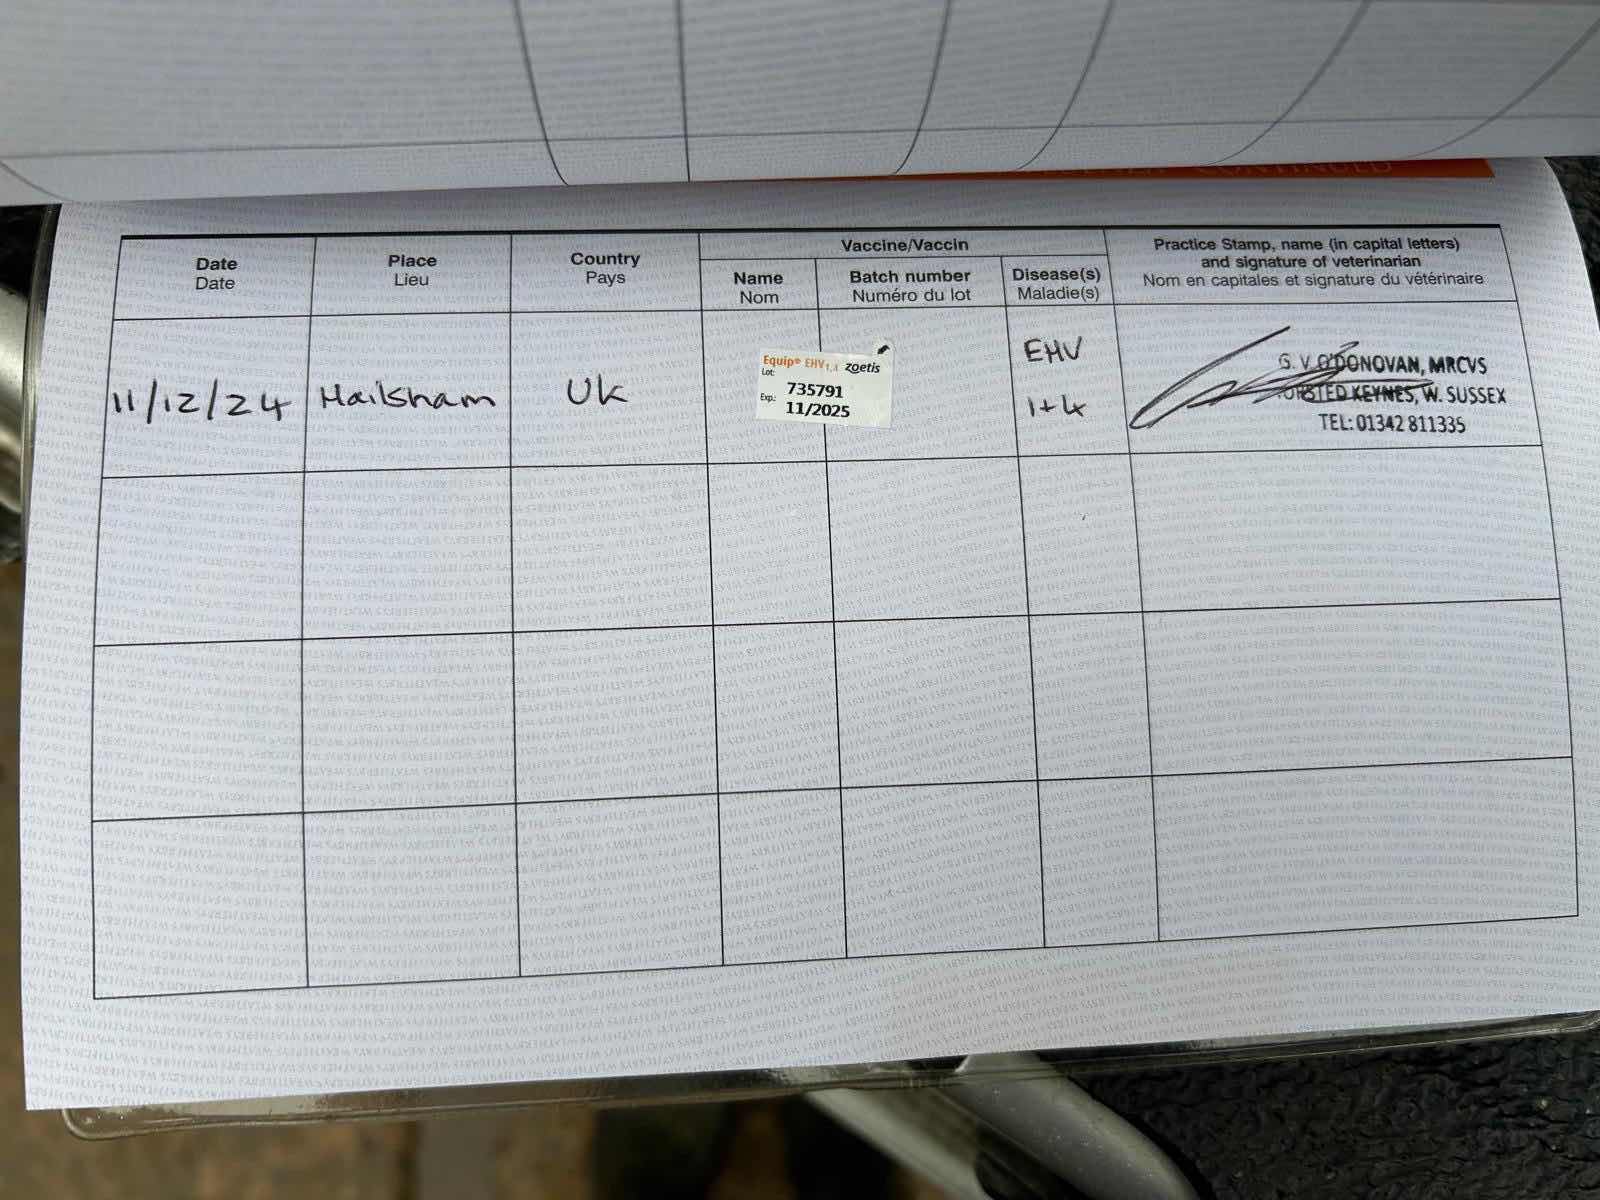 CONTINUED
Date
Date
Place
Lieu
Country
Pays
Vaccine/Vaccin
Name
Nom
Batch number
Numéro du lot
Disease(s)
Maladie(s)
Practice Stamp, name (in capital letters)
and signature of veterinarian
Nom en capitales et signature du vétérinaire
11/12/24
Hailsham
UK
Equip® EHV1,4 zoetis
Lot:
735791
Exp.:
11/2025
EHV
1+4
G. V. O'DONOVAN, MRCVS
KEYNES, W. SUSSEX
TEL: 01342 811335